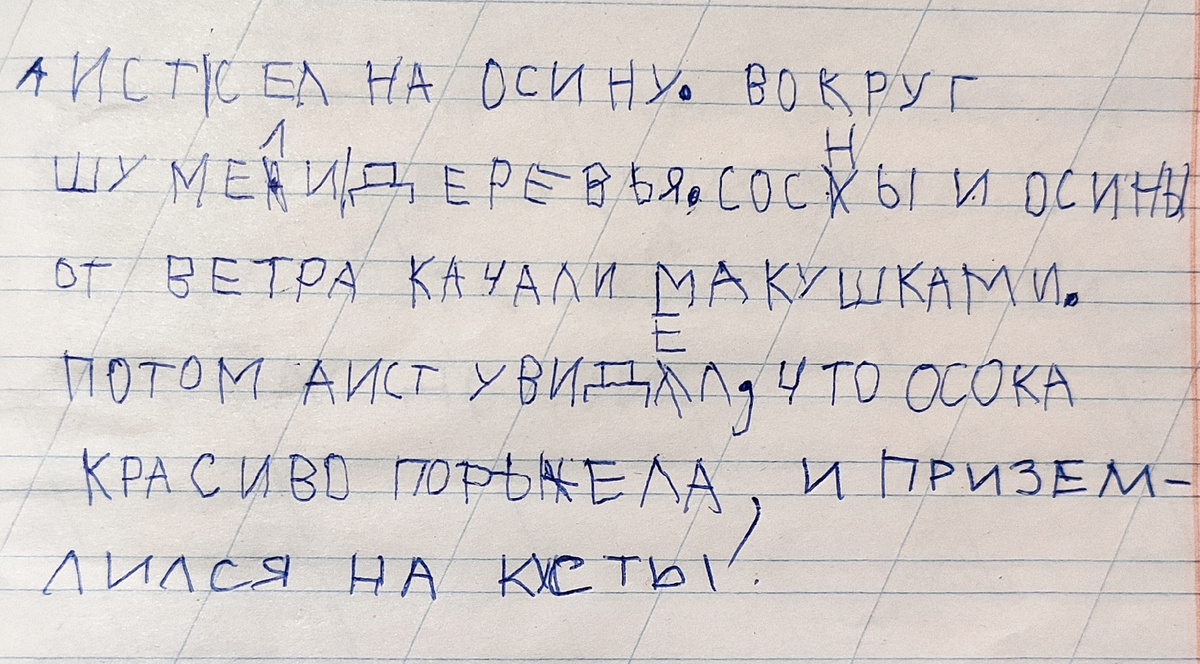 АИСТ СЕЛ НА ОСИНУ. ВОКРУГ
ШУМЕЛИ ДЕРЕВЬЯ. СОСНЫ И ОСИНЫ
ОТ ВЕТРА КАЧАЛИ МАКУШКАМИ.
ПОТОМ АИСТ УВИДЕЛ, ЧТО ОСОКА
КРАСИВО ПОРЫЖЕЛА, И ПРИЗЕМ-
ЛИЛСЯ НА КУСТЫ.